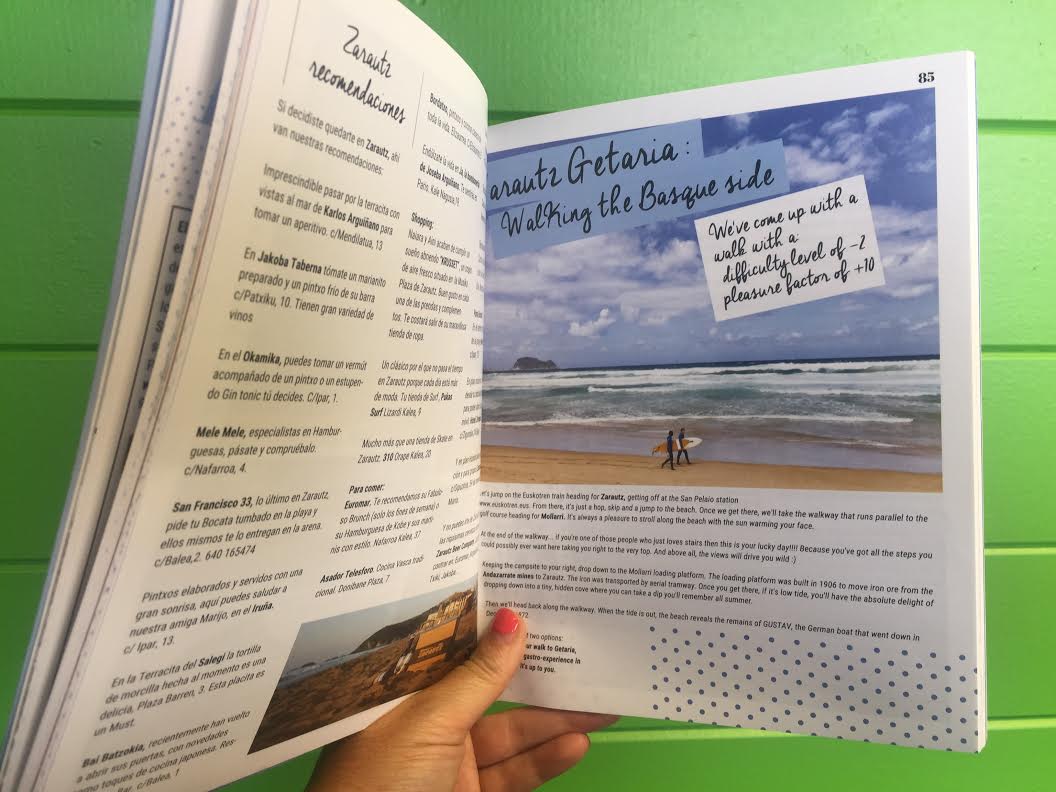 Zarautz
recomendaciones
Si decidiste quedarte en Zarautz, ahí
van nuestras recomendaciones:
Imprescindible pasar por la terracita con
vistas al mar de Karlos Arguiñano para
tomar un aperitivo. c/Mendilatua, 13
En Jakoba Taberna tómate un marianito
preparado y un pintxo frío de su barra
c/Patxiku, 10. Tienen gran variedad de
vinos
En el Okamika, puedes tomar un vermút
acompañado de un pintxo o un estupen-
do Gin tonic tú decides. C/Ipar, 1.
Mele Mele, especialistas en Hambur-
guesas, pásate y compruébalo.
c/Nafarroa, 4.
San Francisco 33, lo último en Zarautz,
pide tu Bocata tumbado en la playa y
ellos mismos te lo entregan en la arena.
c/Balea,2. 640 165474
Pintxos elaborados y servidos con una
gran sonrisa, aquí puedes saludar a
nuestra amiga Marijo, en el Iruña.
c/ Ipar, 13.
En la Terracita del Salegi la tortilla
de morcilla hecha al momento es una
delicia, Plaza Barren, 3. Esta placita es
un Must.
Bai Batzokia, recientemente han vuelto
a abrir sus puertas, con novedades
como toques de cocina japonesa. Res-
Bar. c/Balea, 1
toda la vida.
Endúlzate la vida en
de Joseba Arguiñano.
Shopping:
Naiara y Ain acaban de cumplir
sueño abriendo "KROSSET"
de aire fresco situado en la Musika
Plaza de Zarautz. Buen gusto en cada
una de las prendas y complemen-
tos. Te costará salir de su maravillosa
tienda de ropa.
Un clásico por el que no pasa el tiempo
en Zarautz porque cada día está más
de moda. Tu tienda de Surf, Pukas
Surf Lizardi Kalea, 9
Mucho más que una tienda de Skate en
Zarautz. 310 Orape Kalea, 20
Para comer:
Euromar. Te recomendamos su Fabulo-
so Brunch (solo los fines de semana) o
su Hamburguesa de Kobe y sus marti-
nis con estilo. Nafarroa Kalea, 37
Asador Telesforo. Cocina Vasca tradi-
cional. Donibane Plaza, 7
85
arautz Getaria:
Walking the Basque side
We've come up with a
walk with a
difficulty level of -2
pleasure factor of +10
Let's jump on the Euskotren train heading for Zarautz, getting off at the San Pelaio station
www.euskotren.eus. From there, it's just a hop, skip and a jump to the beach. Once we get there, we'll take the walkway that runs parallel to the
golf course heading for Mollarri. It's always a pleasure to stroll along the beach with the sun warming your face.
At the end of the walkway... if you're one of those people who just loves stairs then this is your lucky day!!!! Because you've got all the steps you
could possibly ever want here taking you right to the very top. And above all, the views will drive you wild :)
Keeping the campsite to your right, drop down to the Mollarri loading platform. The loading platform was built in 1906 to move iron ore from the
Andazarrate mines to Zarautz. The iron was transported by aerial tramway. Once you get there, if it's low tide, you'll have the absolute delight of
dropping down into a tiny, hidden cove where you can take a dip you'll remember all summer.
Then we'll head back along the walkway. When the tide is out, the beach reveals the remains of GUSTAV, the German boat that went down in
two options:
our walk to Getarie,
gastro-experience in
It's up to you.